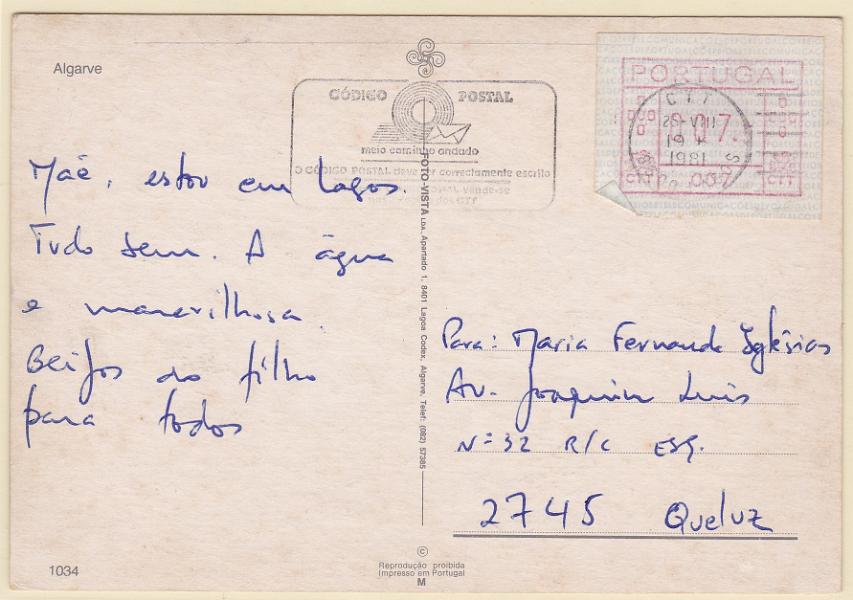 Algarve
CÓDIGO POSTAL
meio caminho andado
O CÓDIGO POSTAL deve ser correctamente escrito
PORTUGAL
007.
CTT
25-VIII
19
1981
CTT 007 CTT
Mãe, estou em Lagos.
Tudo bem. A água
e maravilhosa.
Beijos do filho
para todos
FOTO-VISTA LDA. Apartado 1, 8401 Lagoa Codex, Algarve, Telef: (082) 57385
Para: Maria Fernanda Iglésias
Av. Joaquim Luis
Nº 32 R/C ESQ.
2745 Queluz
1034
©
Reprodução proibida
Impresso em Portugal
M